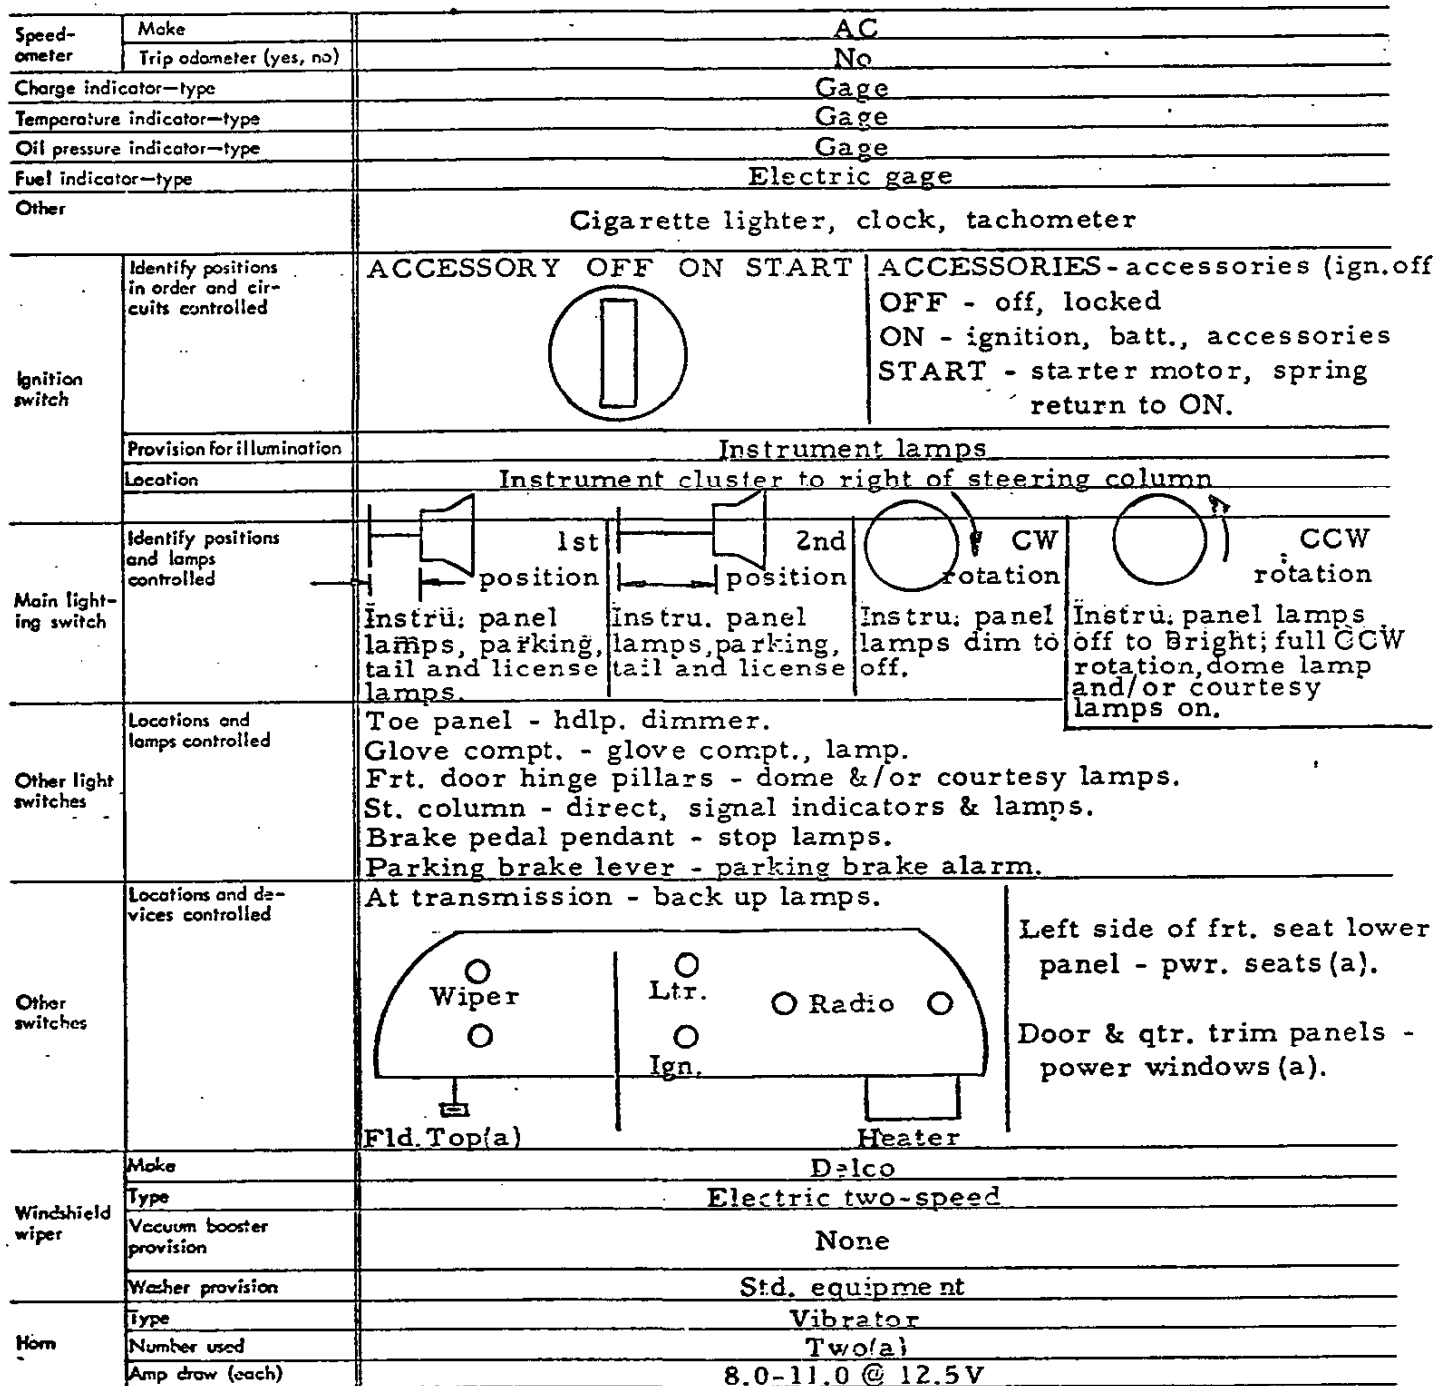 Speed-
ometer
Make
AC
Trip odometer (yes, no)
No
Charge indicator—type
Gage
Temperature indicator—type
Gage
Oil pressure indicator—type
Gage
Fuel indicator—type
Electric gage
Other
Cigarette lighter, clock, tachometer
Ignition
switch
Identify positions
in order and cir-
cuits controlled
ACCESSORY OFF ON START
ACCESSORIES - accessories (ign.off
OFF - off, locked
ON - ignition, batt., accessories
START - starter motor, spring
return to ON.
Provision for illumination
Instrument lamps
Location
Instrument cluster to right of steering column
Main light-
ing switch
Identify positions
and lamps
controlled
1st
position
Instru. panel
lamps, parking,
tail and license
lamps.
2nd
position
Instru. panel
lamps, parking,
tail and license
CW
rotation
Instru. panel
lamps dim to
off.
CCW
rotation
Instru. panel lamps
off to Bright; full CCW
rotation, dome lamp
and/or courtesy
lamps on.
Other light
switches
Locations and
lamps controlled
Toe panel - hdlp. dimmer.
Glove compt. - glove compt., lamp.
Frt. door hinge pillars - dome &/or courtesy lamps.
St. column - direct, signal indicators & lamps.
Brake pedal pendant - stop lamps.
Parking brake lever - parking brake alarm.
Other
switches
Locations and de-
vices controlled
At transmission - back up lamps.
Wiper
Ltr.
Radio
Ign.
Fld. Top(a)
Heater
Left side of frt. seat lower
panel - pwr. seats (a).
Door & qtr. trim panels -
power windows (a).
Windshield
wiper
Make
Delco
Type
Electric two-speed
Vacuum booster
provision
None
Washer provision
Std. equipment
Horn
Type
Vibrator
Number used
Two(a)
Amp draw (each)
8.0-11.0 @ 12.5V